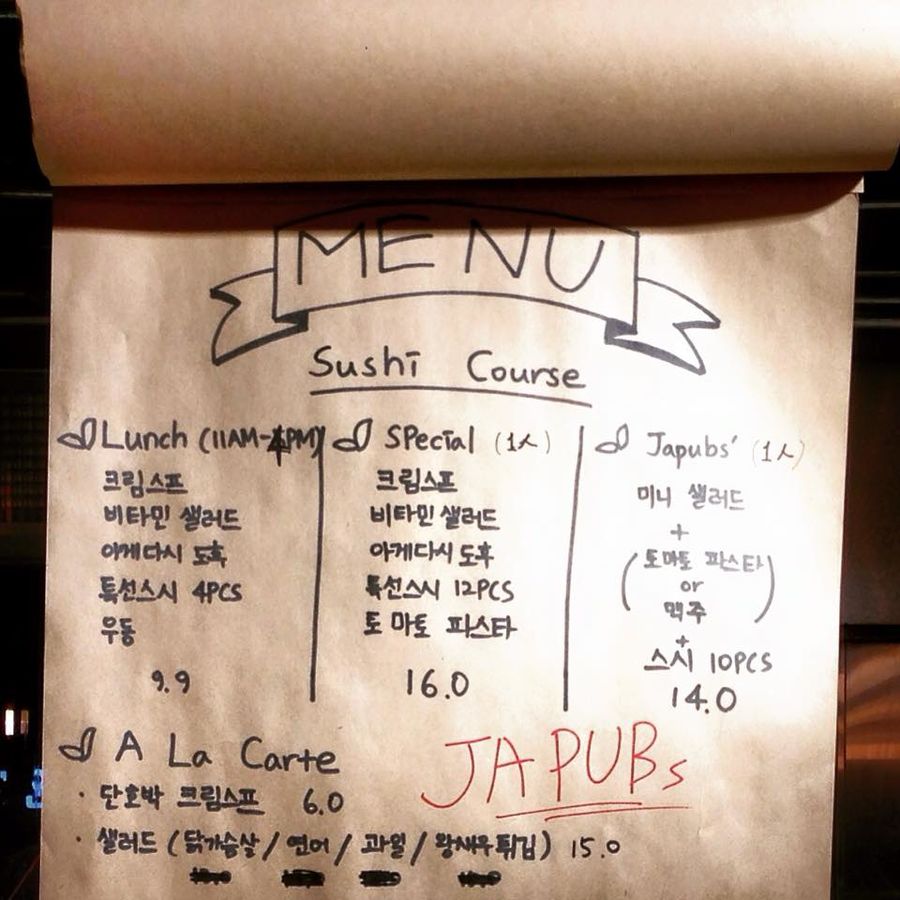 MENU
Sushi Course
Lunch (11AM-4PM)
크림스프
비타민 샐러드
아게다시 도후
특선스시 4PCS
우동
9.9
SPecial (1人)
크림스프
비타민 샐러드
아게다시 도후
특선스시 12PCS
토마토 파스타
16.0
Japubs' (1人)
미니 샐러드
+
(토마토 파스타
or
맥주)
+
스시 10PCS
14.0
A La Carte
· 단호박 크림스프 6.0
· 샐러드 (닭가슴살 / 연어 / 과일 / 왕새우튀김) 15.0
JAPUBs